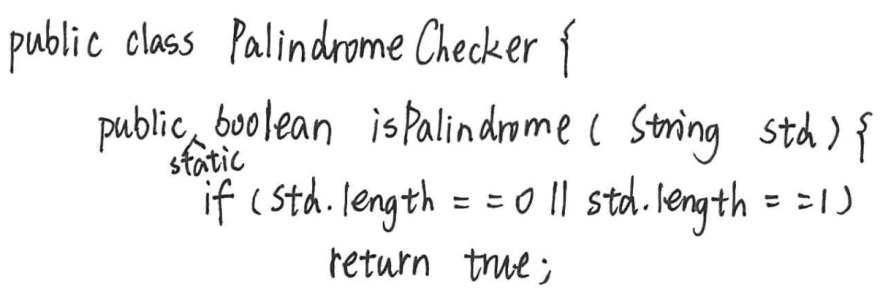 public class Palindrome Checker {
public static boolean isPalindrome ( String std ) {
if ( std.length = = 0 || std.length = = 1 )
return true;